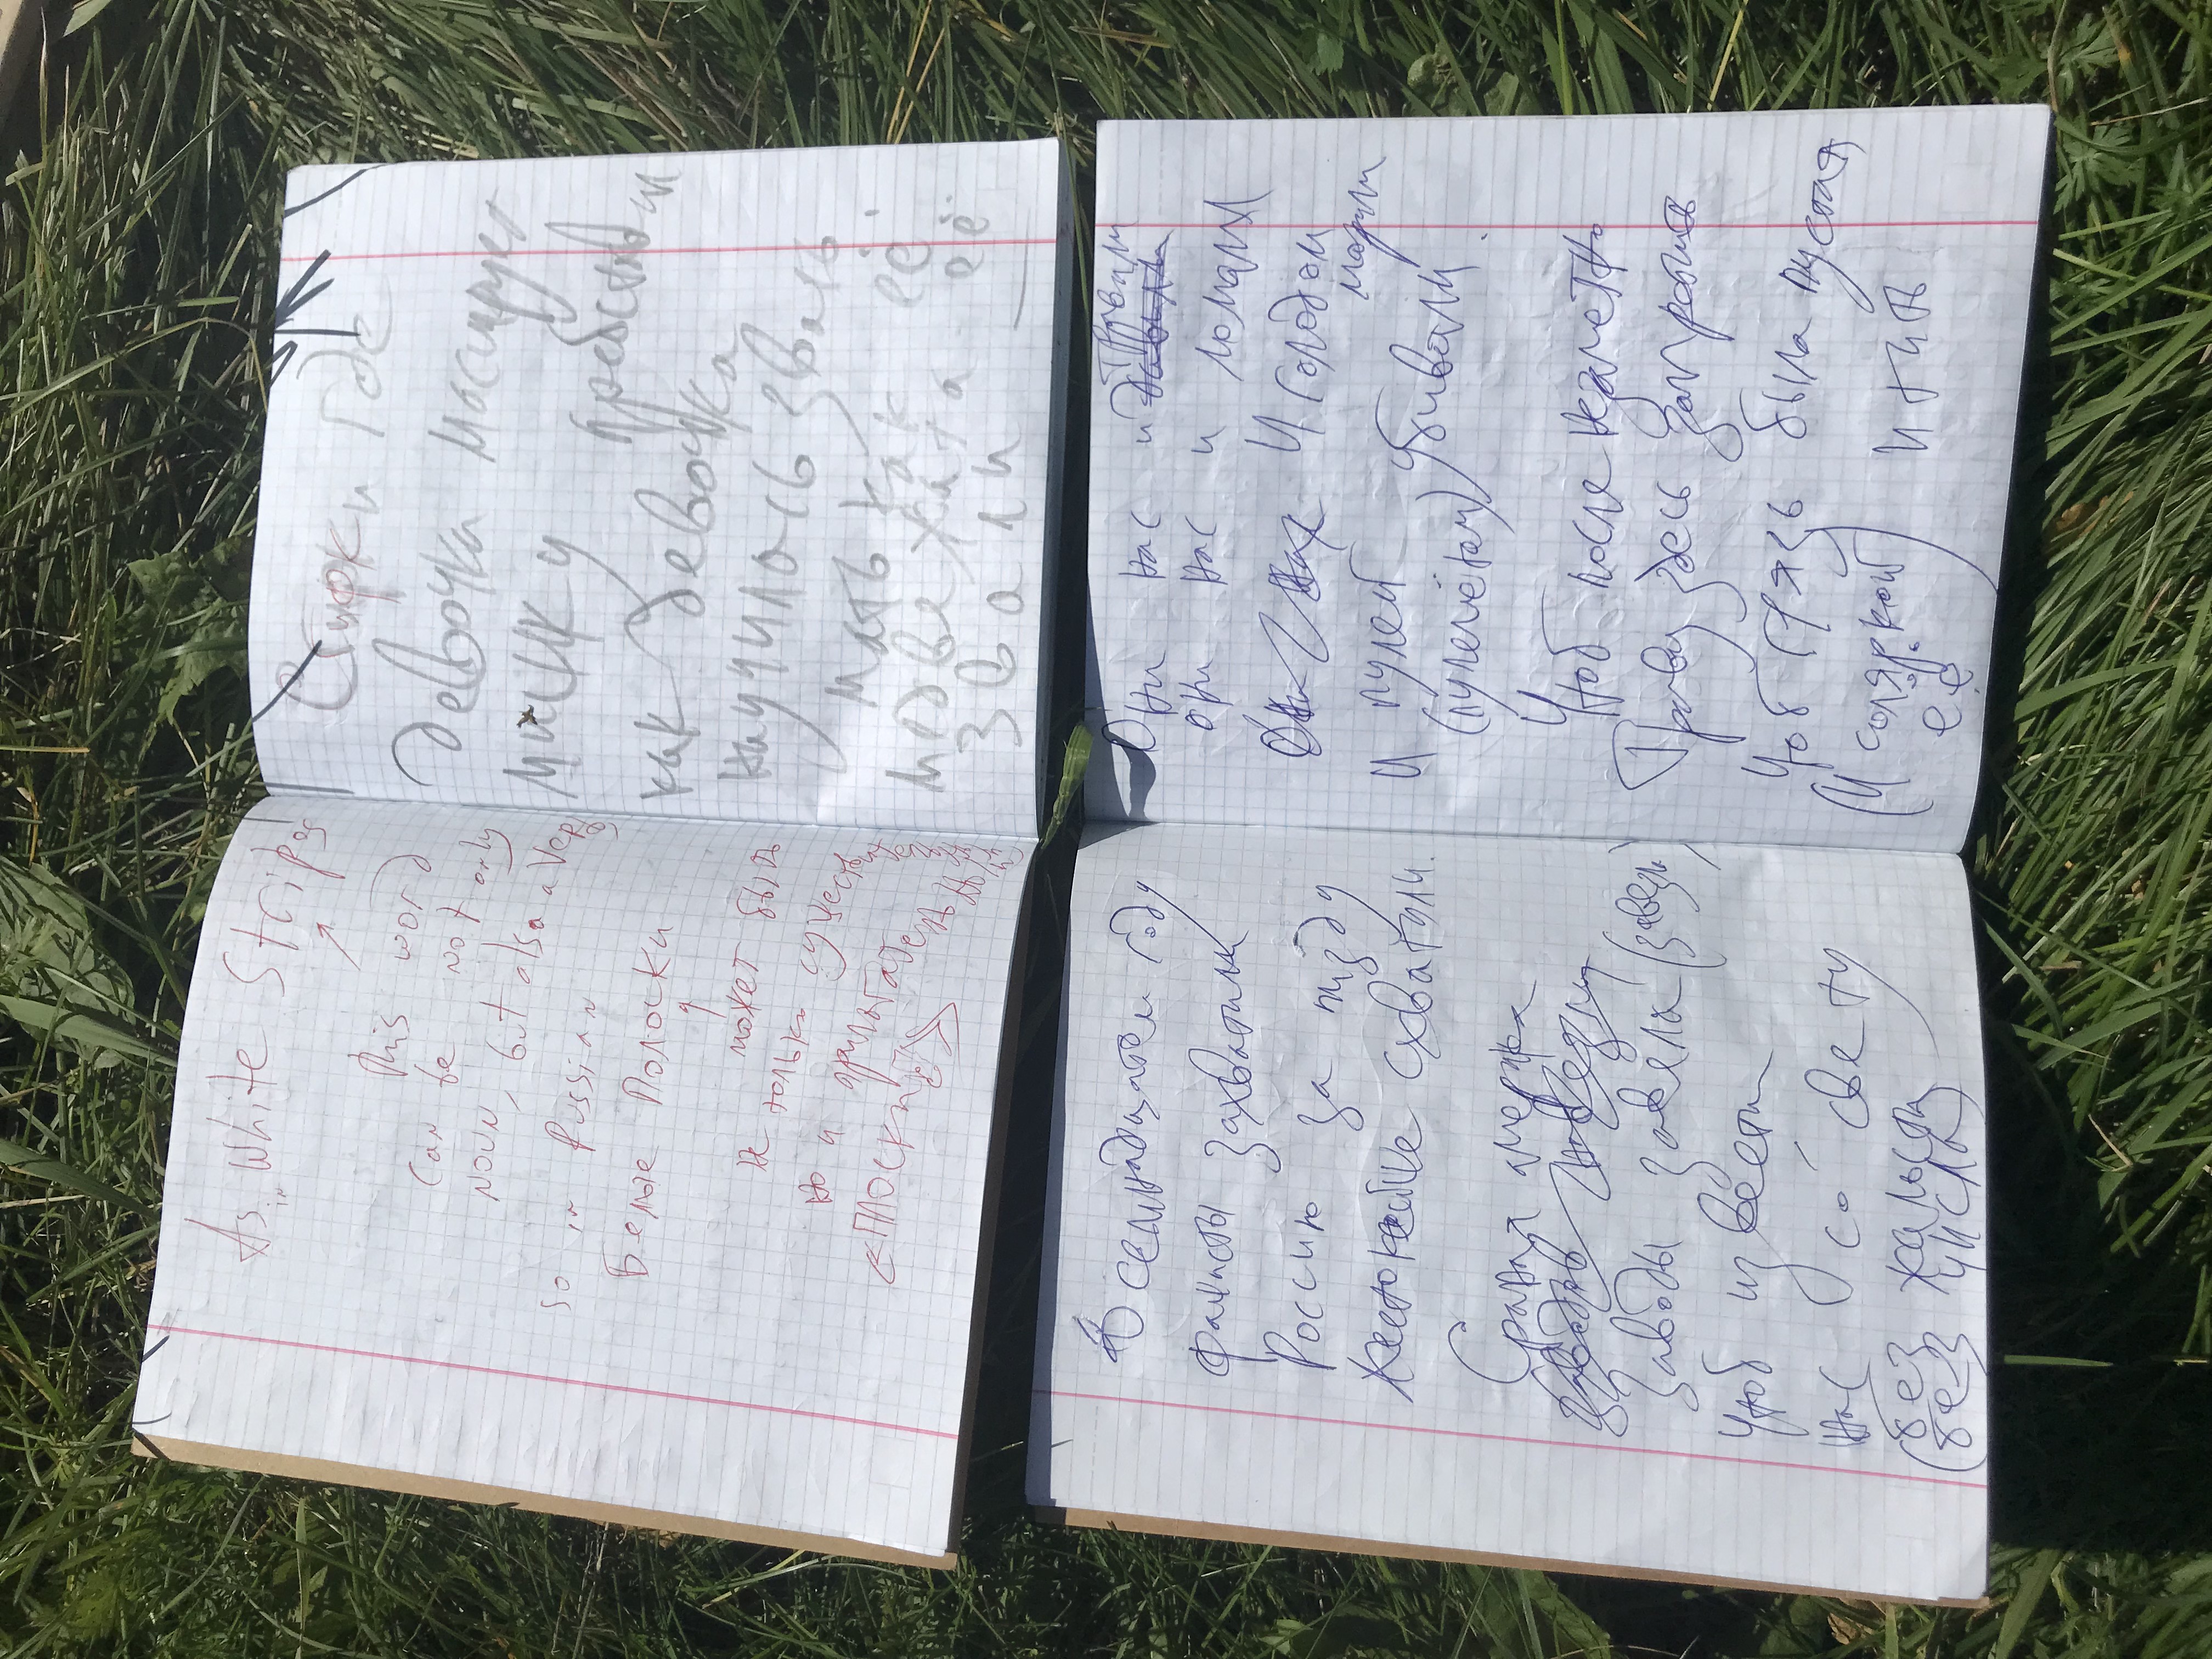 As in White Stripes
This word
can be not only
noun, but also a verb,
so in Russian
Белые Полоски
может быть
не только существительным
но и прилагательным
<плоский>
Стишки где
девочка масирует
мишку представил
как девочка
научилась звать
мать как её
медвежата её
звали
В семнадцатом году
фашисты захватили
Россию за пизду
Жесточайше схватили.
Сраная
Заводы завела (завезла)
чтоб извести
нас со свету
без жалости
(без числа)
травили
Они нас и давили
они нас и ломали
Они нас И голодом
морили
И пулей убивали.
(пулемётом)
Чтоб после незаметно
Траву здесь запретить
Чтоб грязь была пустая
(И соляркой её) и пить